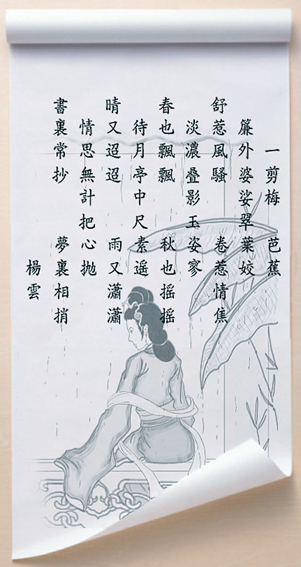 一剪梅 芭蕉
簾外婆娑翠葉姣
舒惹風騷 卷惹情焦
淡濃叠影玉姿寥
春也飄飄 秋也摇摇
待月亭中尺素遥
晴又迢迢 雨又瀟瀟
情思無計把心抛
書裏常抄 夢裏相捎
楊雲